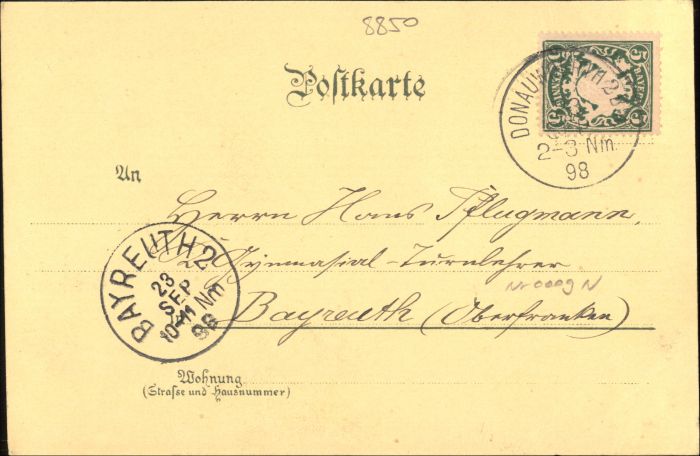 8850
Postkarte
BAYERN
5 5
DONAUW
2-3 Nm.
98
An
Herrn Hans Pflugmann,
Gymnasial-Turnlehrer
Nr 0009 N
Bayreuth (Oberfranken)
BAYREUTH 2
23
SEP
10-11 Nm
98
Wohnung
(Straße und Hausnummer)